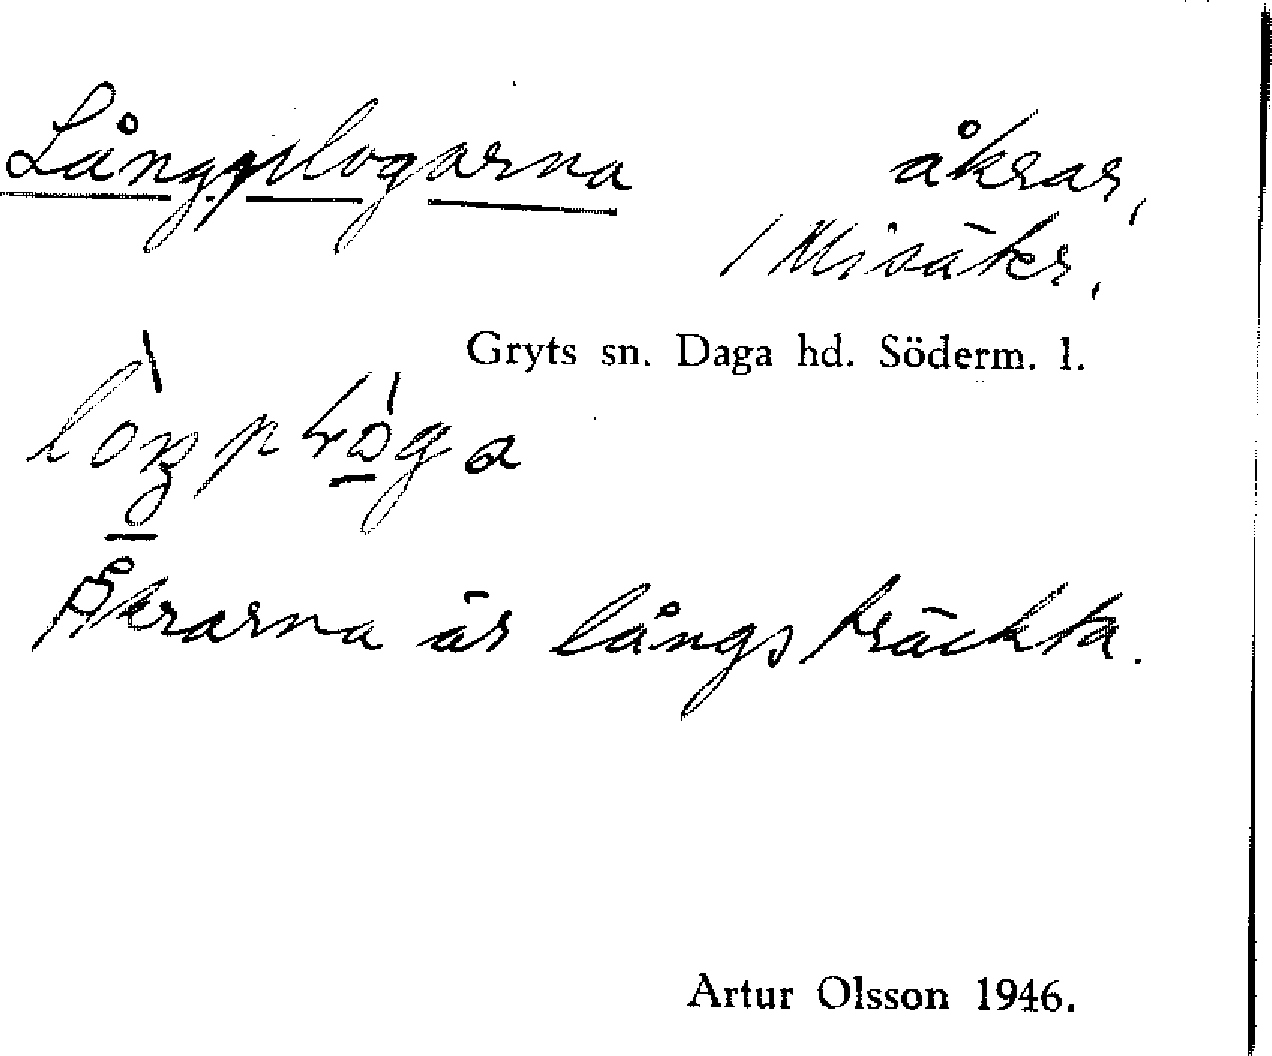 Långplogarna åkrar,
Gryts sn. Daga hd. Söderm. l.
Åkrarna är långsträckta.
Artur Olsson 1946.